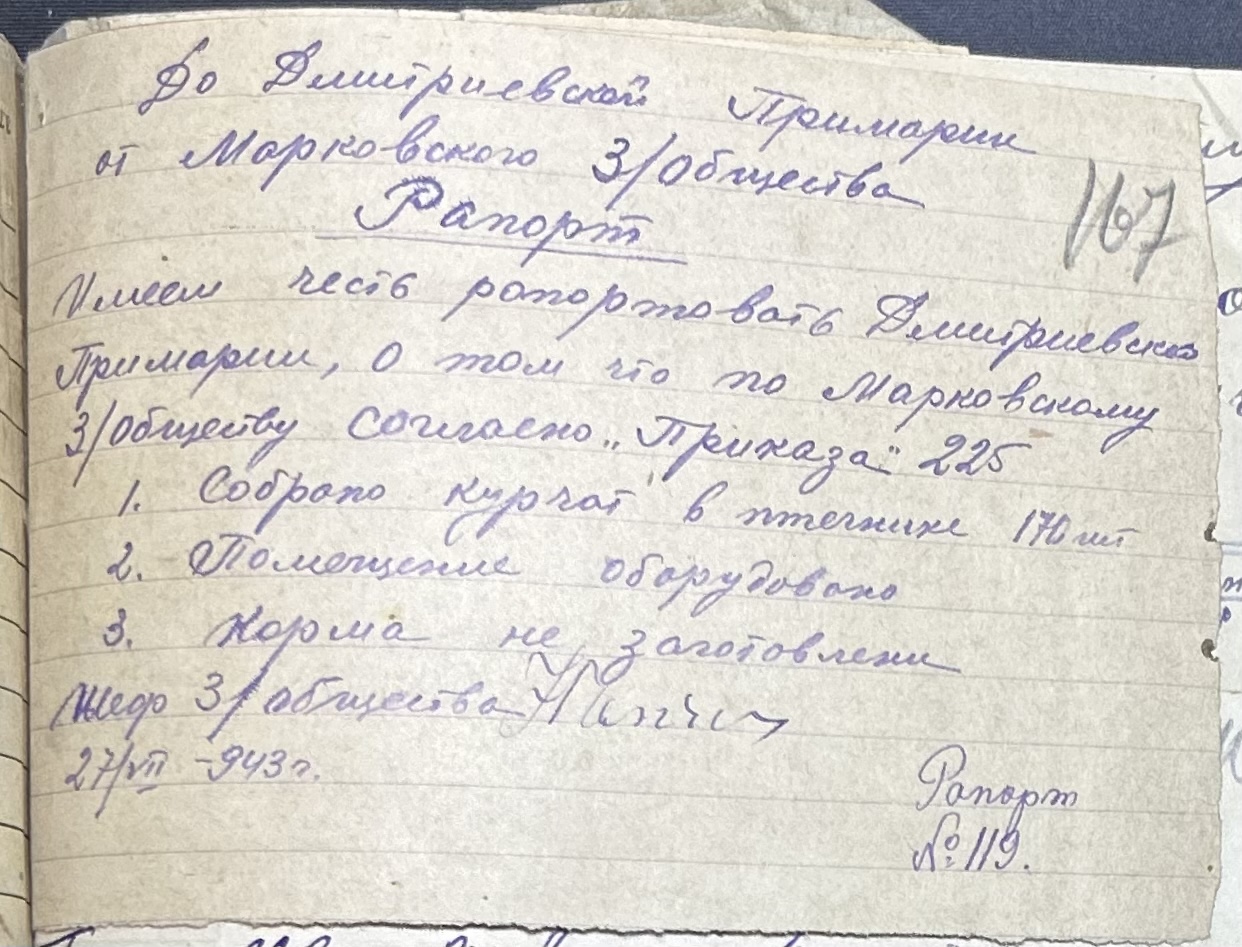 До Дмитриевской Примарии
от Марковского З/Общества
167
Рапорт
Имеем честь рапортовать Дмитриевской
Примарии, о том что по Марковскому
З/Обществу согласно „Приказа" 225
1. Собрано курчат в птечнике 170 шт
2. Помещение оборудовано
3. Корма не заготовлени
Шеф З/общества
27/VII -943 г.
Рапорт
№ 119.